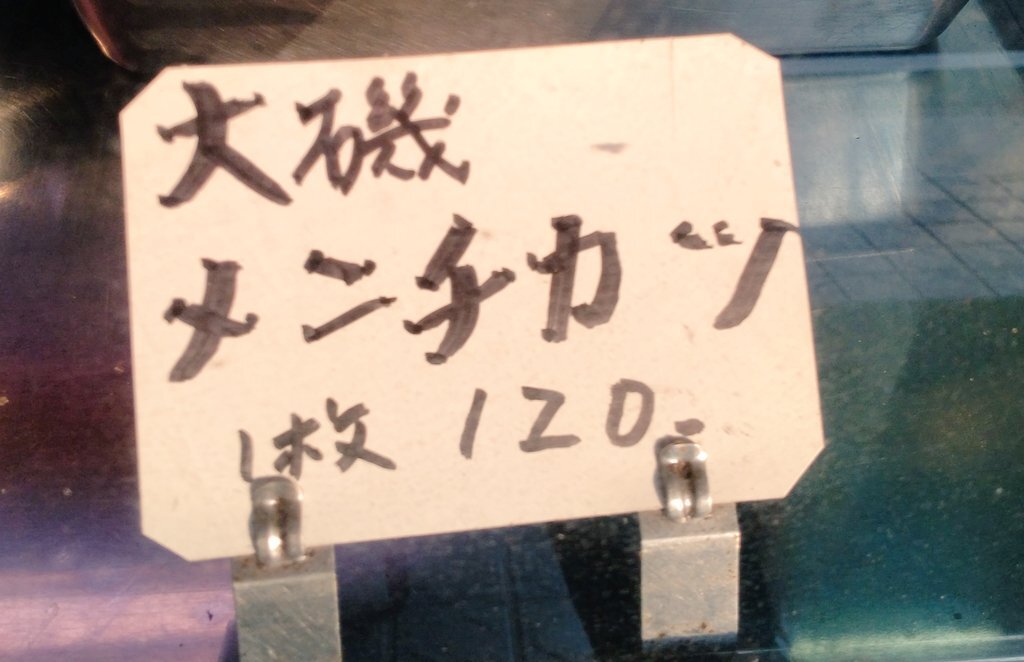 大磯
メンチカツ
1枚 120.-